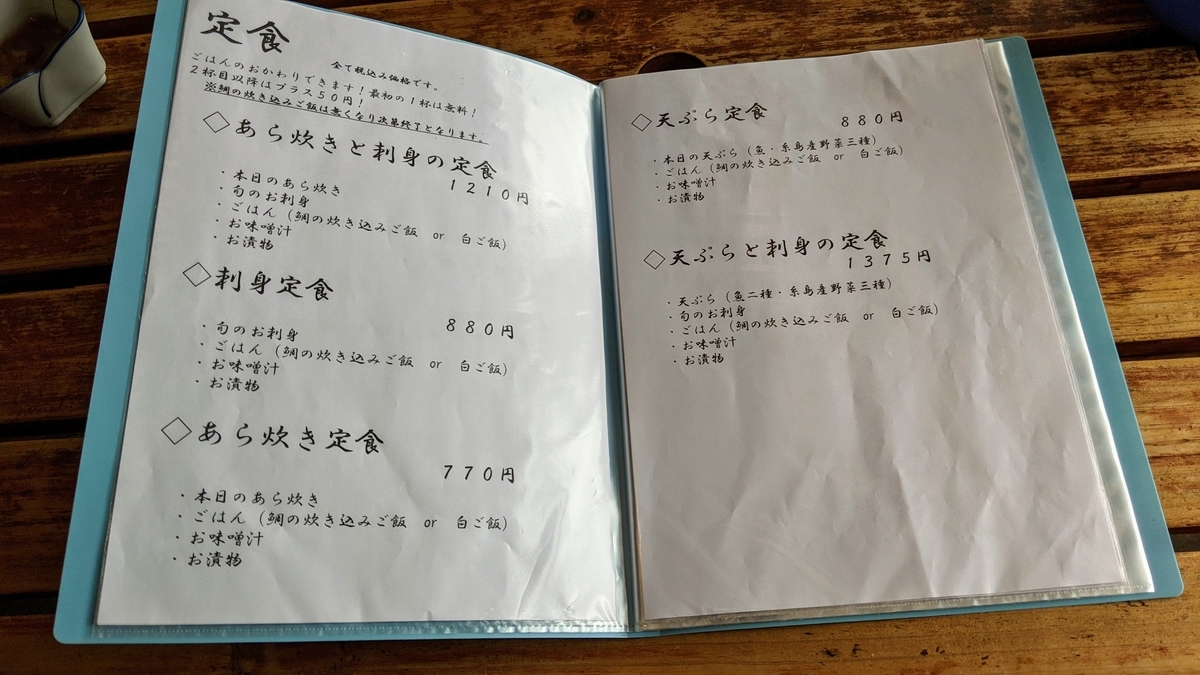 定食
全て税込み価格です。
ごはんのおかわりできます！最初の１杯は無料！
２杯目以降はプラス５０円！
※鯛の炊き込みご飯は無くなり次第終了となります。
◇あら炊きと刺身の定食
１２１０円
・本日のあら炊き
・旬のお刺身
・ごはん（鯛の炊き込みご飯 or 白ご飯）
・お味噌汁
・お漬物
◇刺身定食
８８０円
・旬のお刺身
・ごはん（鯛の炊き込みご飯 or 白ご飯）
・お味噌汁
・お漬物
◇あら炊き定食
７７０円
・本日のあら炊き
・ごはん（鯛の炊き込みご飯 or 白ご飯）
・お味噌汁
・お漬物
◇天ぷら定食
８８０円
・本日の天ぷら（魚・糸島産野菜三種）
・ごはん（鯛の炊き込みご飯 or 白ご飯）
・お味噌汁
・お漬物
◇天ぷらと刺身の定食
１３７５円
・天ぷら（魚二種・糸島産野菜三種）
・旬のお刺身
・ごはん（鯛の炊き込みご飯 or 白ご飯）
・お味噌汁
・お漬物